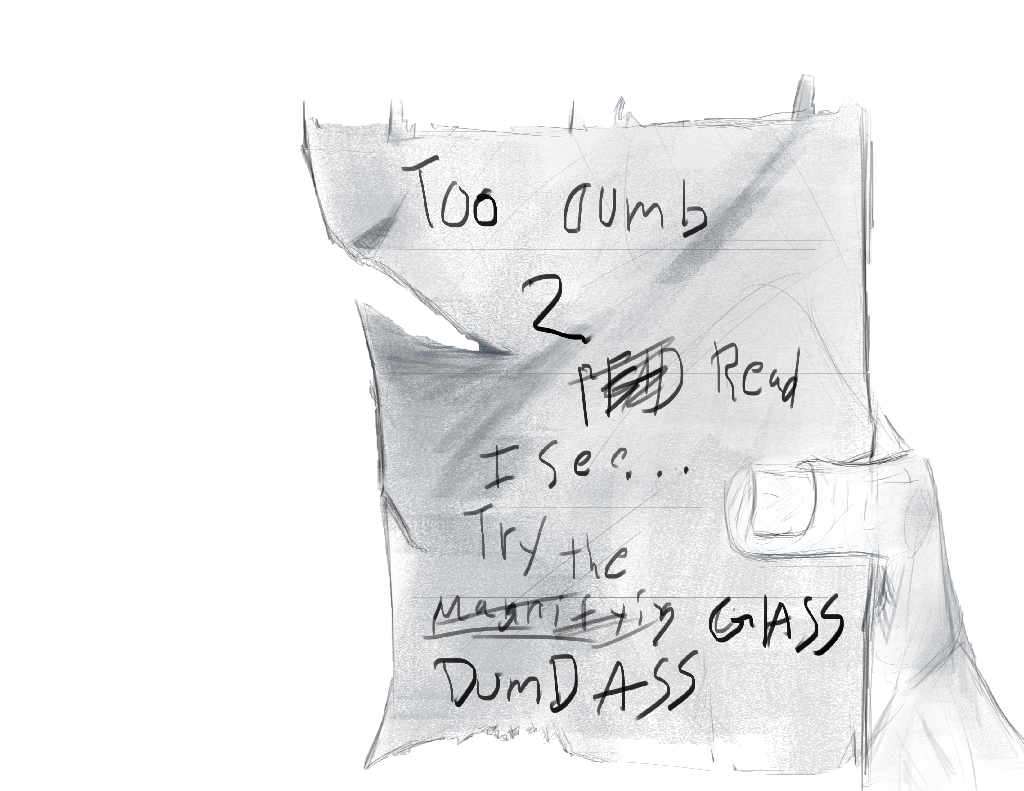 Too dumb
2
Read
I see...
Try the
Magnifyin GlASS
DumD ASS